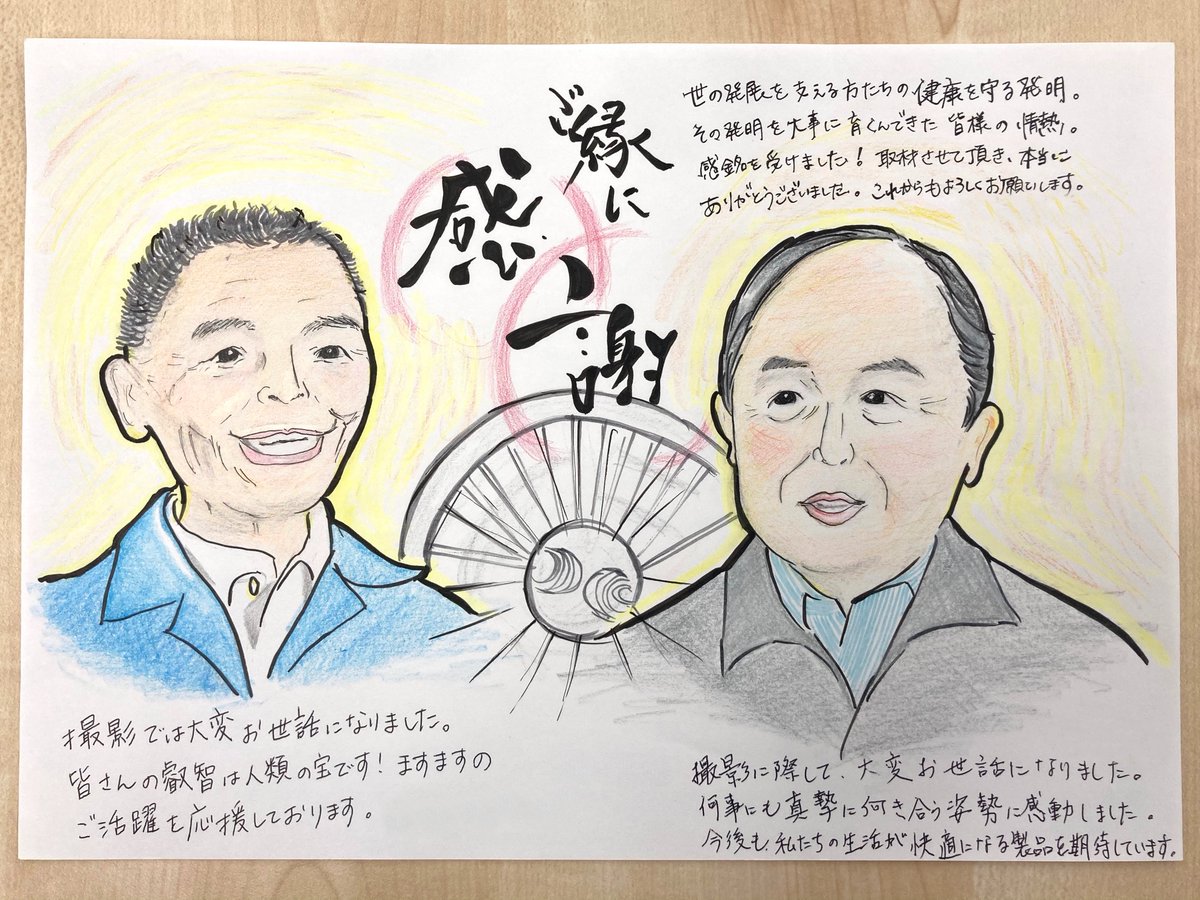 ご縁に
感謝
世の発展を支える方たちの健康を守る発明。
その発明を大事に育くんできた皆様の情熱。
感銘を受けました!取材させて頂き、本当に
ありがとうございました。これからもよろしくお願いします。
撮影では大変お世話になりました。
皆さんの叡智は人類の宝です!ますますの
ご活躍を応援しております。
撮影に際して、大変お世話になりました。
何事にも真摯に向き合う姿勢に感動しました。
今後も、私たちの生活が快適になる製品を期待しています。